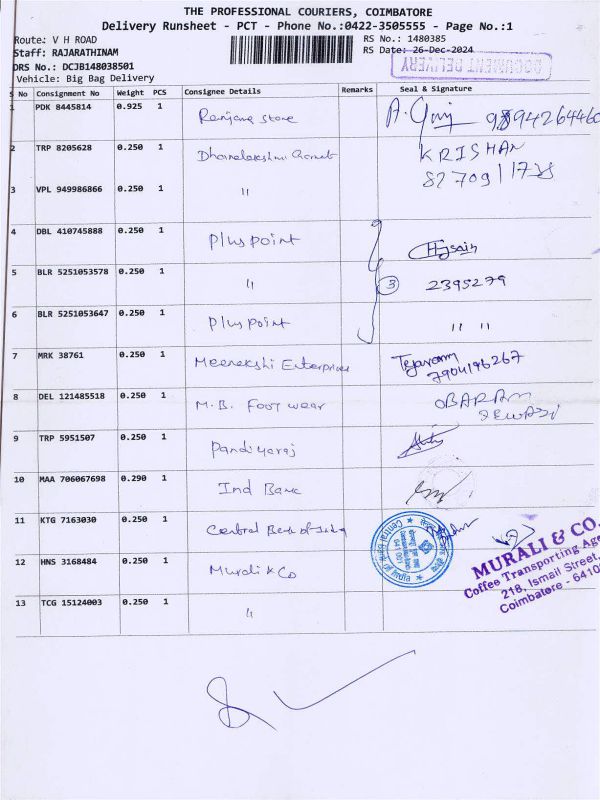 THE PROFESSIONAL COURIERS, COIMBATORE
Delivery Runsheet - PCT - Phone No.:0422-3505555 - Page No.:1
Route: V H ROAD
RS No.: 1480385
Staff: RAJARATHINAM
RS Date: 26-Dec-2024
DOCUMENT DELIVERY
DRS No.: DCJB148038501
Vehicle: Big Bag Delivery
S No Consignment No Weight PCS Consignee Details Remarks Seal & Signature
1 PDK 8445814 0.925 1 store
2 TRP 8205628 0.250 1 KRISHAN
3 VPL 949986866 0.250 1 "
4 DBL 410745888 0.250 1 Plus point
5 BLR 5251053578 0.250 1 " 3 2395279
6 BLR 5251053647 0.250 1 Plus point " "
7 MRK 38761 0.250 1 Meenakshi Enterprises Tejaram
7904196267
8 DEL 121485518 0.250 1 M.B. Foot wear OBARAM
9 TRP 5951507 0.250 1 Pandiyaraj
10 MAA 706067698 0.290 1 Ind Bank
11 KTG 7163030 0.250 1 Central Bank of India
12 HNS 3168484 0.250 1 Murali & Co
MURALI & CO.
Coffee Transporting
218, Ismail Street,
Coimbatore - 6410
13 TCG 15124003 0.250 1 "